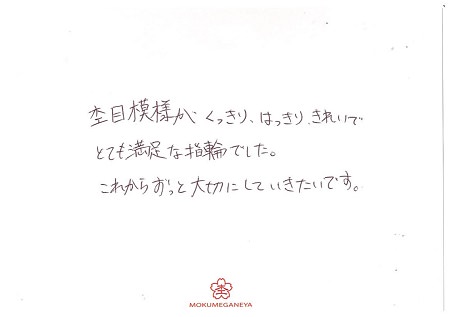 杢目模様が くっきり、はっきり きれいで
とても満足な指輪でした。
これからずっと大切にしていきたいです。
MOKUMEGANEYA